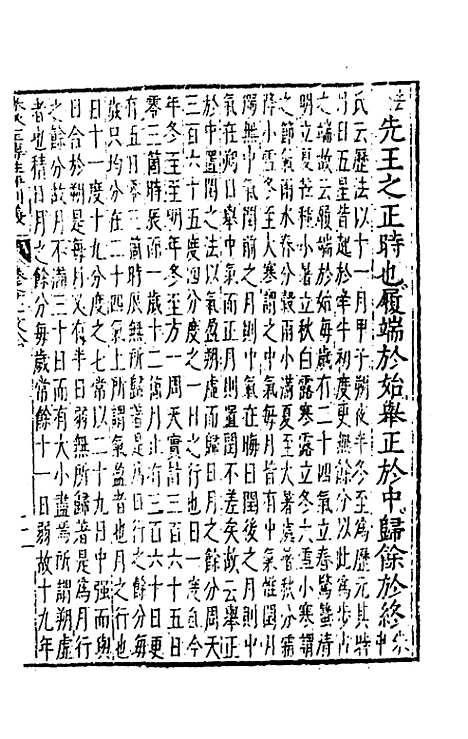 法先王之正時也履端於始舉正於中歸餘於終
氏云歷法以十一月甲子朔夜半冬至為歷元其時
日月五星皆起於牽牛初度更無餘分以此為步占
之端故云履端於始每歲有二十四氣立春驚蟄清
明立夏芒種小暑立秋白露寒露立冬大雪小寒謂
之節氣雨水春分穀雨小滿夏至大暑處暑秋分霜
降小雪冬至大寒謂之中氣每月皆有中氣惟閏月
獨無中氣閏前之月則中氣在晦日閏後之月則中
氣在朔日舉中氣而正月則置閏不差矣故云舉正
於中置閏之法由氣盈朔虛而歸日月之餘分周天
三百六十五度四分度之一日之行也日一度自今
年冬至至明年冬至方一周天實計三百六十五日
零三箇時辰而一歲十二箇月止有三百六十日更
有五日零三箇時辰無所歸著是為日行之餘分今
故只均分在二十四氣上所謂氣盈者也月之行也
日十一度十九分度之七常以二十九日中強而與
日合於朔是每月又有半日弱無所歸著是為月行
之餘分故月不滿三十日而有大小盡為所謂朔虛
者也積日月之餘分每歲常餘十一日弱故十九年